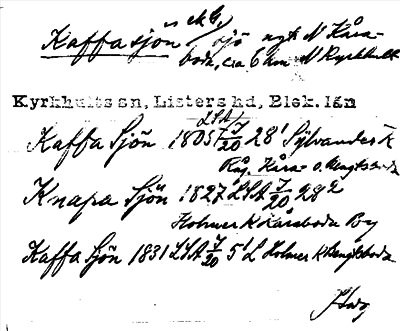 Kaffasjön sjö nyt N Kåra-
boda, cra 6 km N Kyrkhult
Kyrkhults sn, Listers hd, Blek. län
Kaffa Sjön 1805 LSA 7/20 28¹ Sylvander k
Råg. Kåra- o.
Knapa Sjön 1827 LSA 7/20 28²
Holmer K Kåraboda By
Kaffa Sjön 1831 LSA 7/20 5¹ L Holmer K